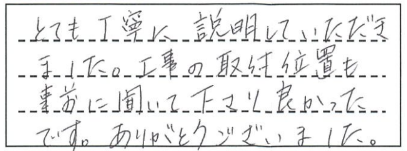 とても丁寧に説明していただき
ました。工事の取付位置も
事前に聞いて下さり良かった
です。ありがとうございました。